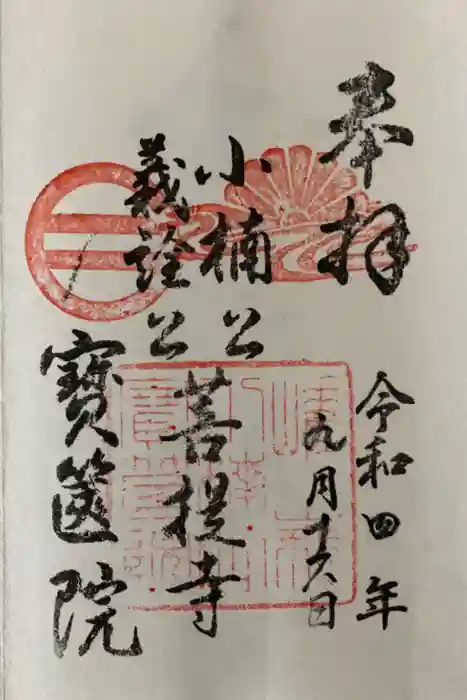 奉拝
令和四年
九月十六日
小楠公
義詮公
菩提寺
寶篋院